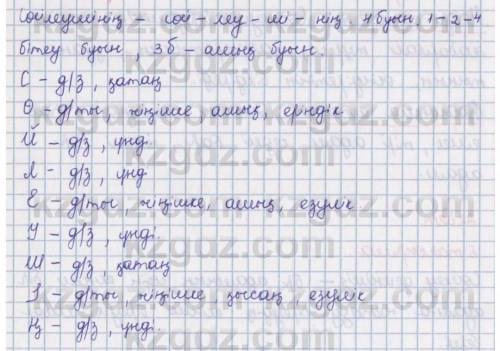 Сөйлеушінің - сөй - леу - ші - нің. 4 буын. 1-2-4
бітеу буын, 3б - ашық буын.
С - д/з, қатаң
Ө - д/ты, жіңішке, ашық, еріндік
Й - д/з, үнді
Л - д/з, үнд
Е - д/ты, жіңішке, ашық, езулік
У - д/з, үнді
Ш - д/з, қатаң
І - д/ты, жіңішке, қысаң, езулік
Ң - д/з, үнді.
kzgdz.com